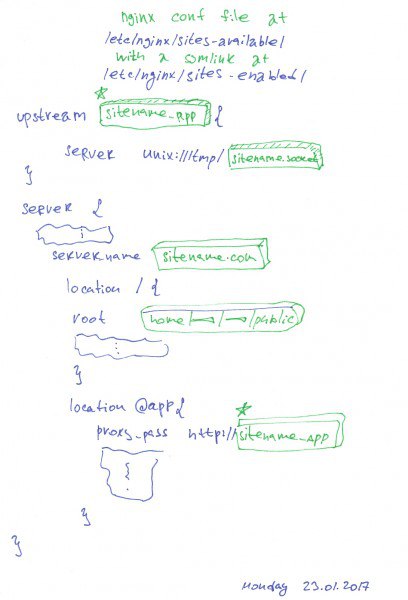 nginx conf file at
/etc/nginx/sites-available/
with a somlink at
/etc/nginx/sites-enabled/
upstream sitename_app {
server unix:///tmp/sitename.socket
}
server {
server name sitename.com
location / {
root home → / → /public
}
location @app {
proxy_pass http://sitename_app
}
}
Monday 23.01.2017